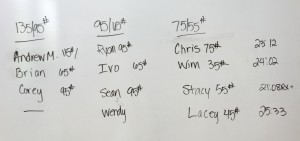 135/95# 95/65# 75/55#
Andrew M. 115# Ryan 95# Chris 75# 23:12
Brian 65# Ivo 65# Wim 35# 24:02
Corey 95# Sean 95# Stacy 55# 21:08Rx+
Wendy Lacey 45# 25:33